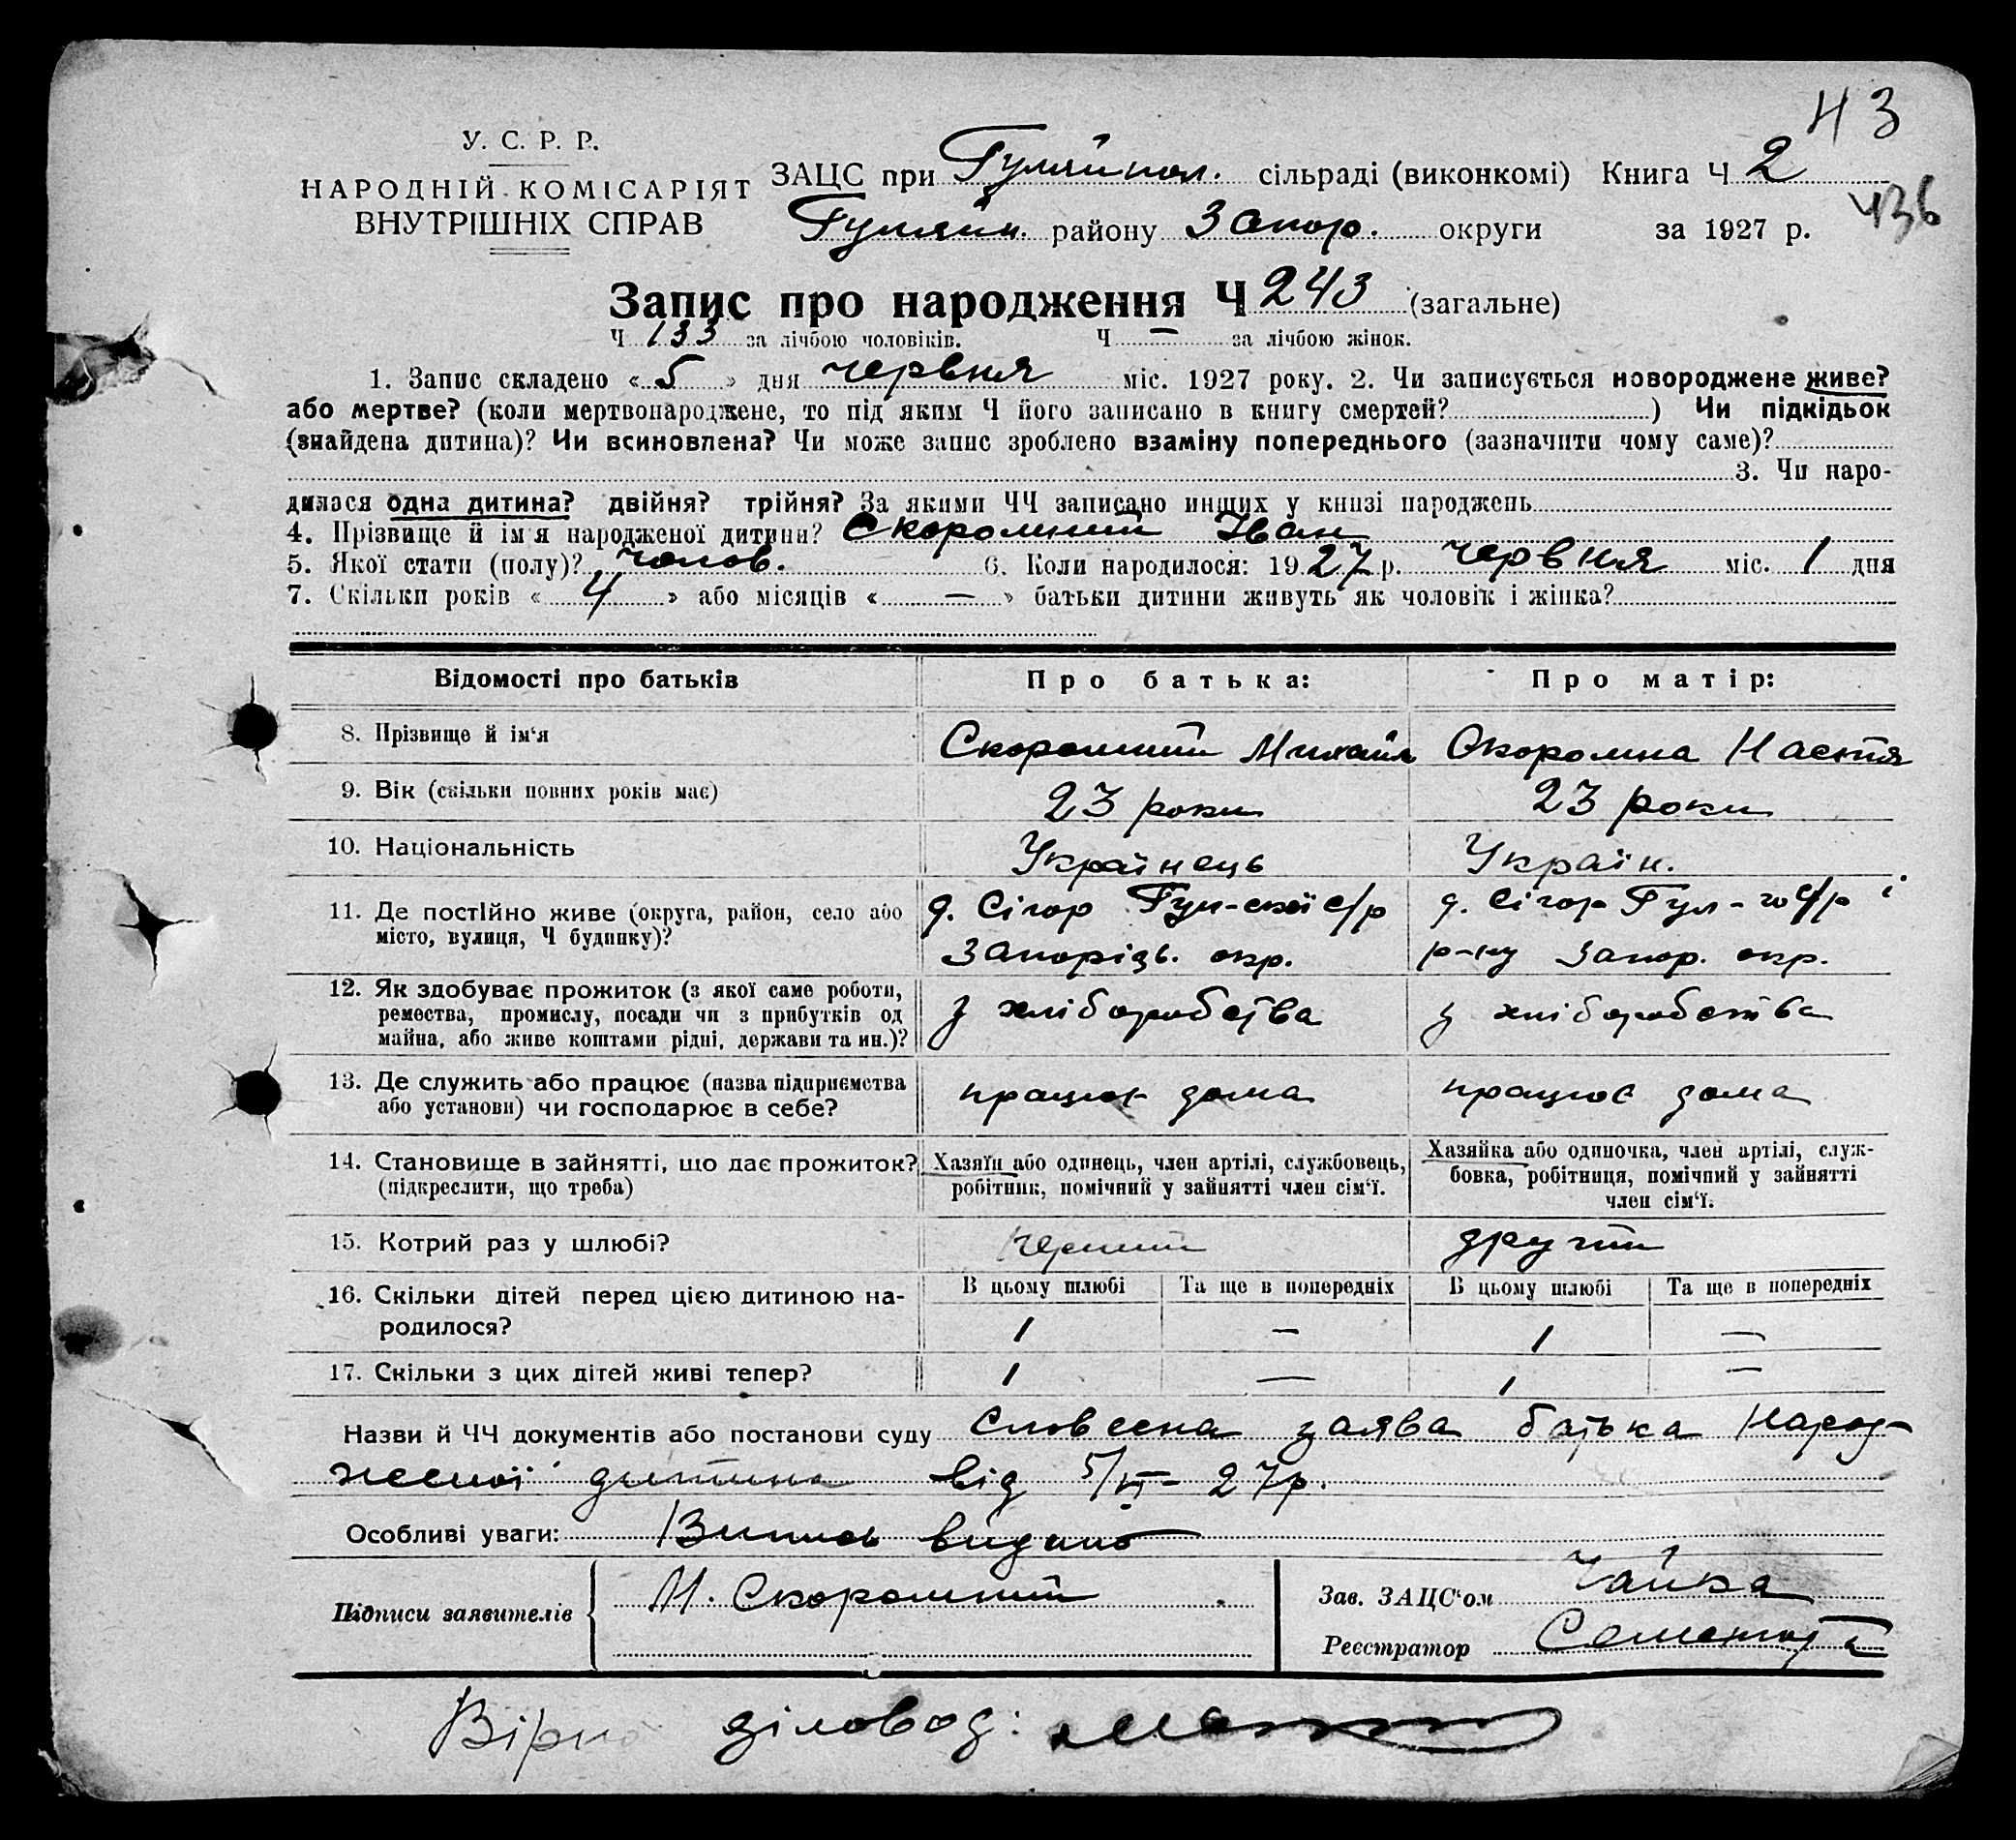 43
У. С. Р. Р.
НАРОДНІЙ КОМІСАРІЯТ
ВНУТРІШНІХ СПРАВ
ЗАЦС при Гуляйпол. сільраді (виконкомі) Книга Ч 2
436
Гуляйп. району Запор. округи за 1927 р.
Запис про народження Ч 243 (загальне)
Ч 133 за лічбою чоловіків. Ч — за лічбою жінок.
1. Запис складено « 5 » дня червня міс. 1927 року. 2. Чи записується новороджене живе?
або мертве? (коли мертвонароджене, то під яким Ч його записано в книгу смертей? ) Чи підкідьок
(знайдена дитина)? Чи всиновлена? Чи може запис зроблено взаміну попереднього (зазначити чому саме)?
3. Чи наро-
дилася одна дитина? двійня? трійня? За якими ЧЧ записано инших у книзі народжень
4. Прізвище й ім'я народженої дитини? Скоромний Іван
5. Якої стати (полу)? чолов. 6. Коли народилося: 1927 р. червня міс. 1 дня
7. Скільки років « 4 » або місяців « — » батьки дитини живуть як чоловік і жінка?
Відомості про батьків Про батька: Про матір:
8. Прізвище й ім'я Скоромний Михайло Скоромна Настя
9. Вік (скільки повних років має) 23 роки 23 роки
10. Національність Українець Україн.
11. Де постійно живе (округа, район, село або місто, вулиця, Ч будинку)?
д. Сігор Гул-ської с/р
Запорізь. окр.
д. Сігор Гул-го с/р і
р-ну Запор. окр.
12. Як здобуває прожиток (з якої саме роботи,
ремества, промислу, посади чи з прибутків од
майна, або живе коштами рідні, держави та ин.)?
з хліборобства з хліборобства
13. Де служить або працює (назва підприємства
або установи) чи господарює в себе?
працює дома працює дома
14. Становище в зайнятті, що дає прожиток?
(підкреслити, що треба)
Хазяїн або одинець, член артілі, службовець,
робітник, помічний у зайнятті член сім'ї.
Хазяйка або одиночка, член артілі, служ-
бовка, робітниця, помічний у зайнятті
член сім'ї.
15. Котрий раз у шлюбі? перший другий
16. Скільки дітей перед цією дитиною на-
родилося?
В цьому шлюбі Та ще в попередніх В цьому шлюбі Та ще в попередніх
1 — 1 —
17. Скільки з цих дітей живі тепер? 1 — 1 —
Назви й ЧЧ документів або постанови суду Словесна заява батька народ-
женої дитини від 5/VI-27р.
Особливі уваги: Випись видано
Підписи заявителів М. Скоромний
Зав. ЗАЦС'ом Чайка
Реєстратор
Вірно діловод: